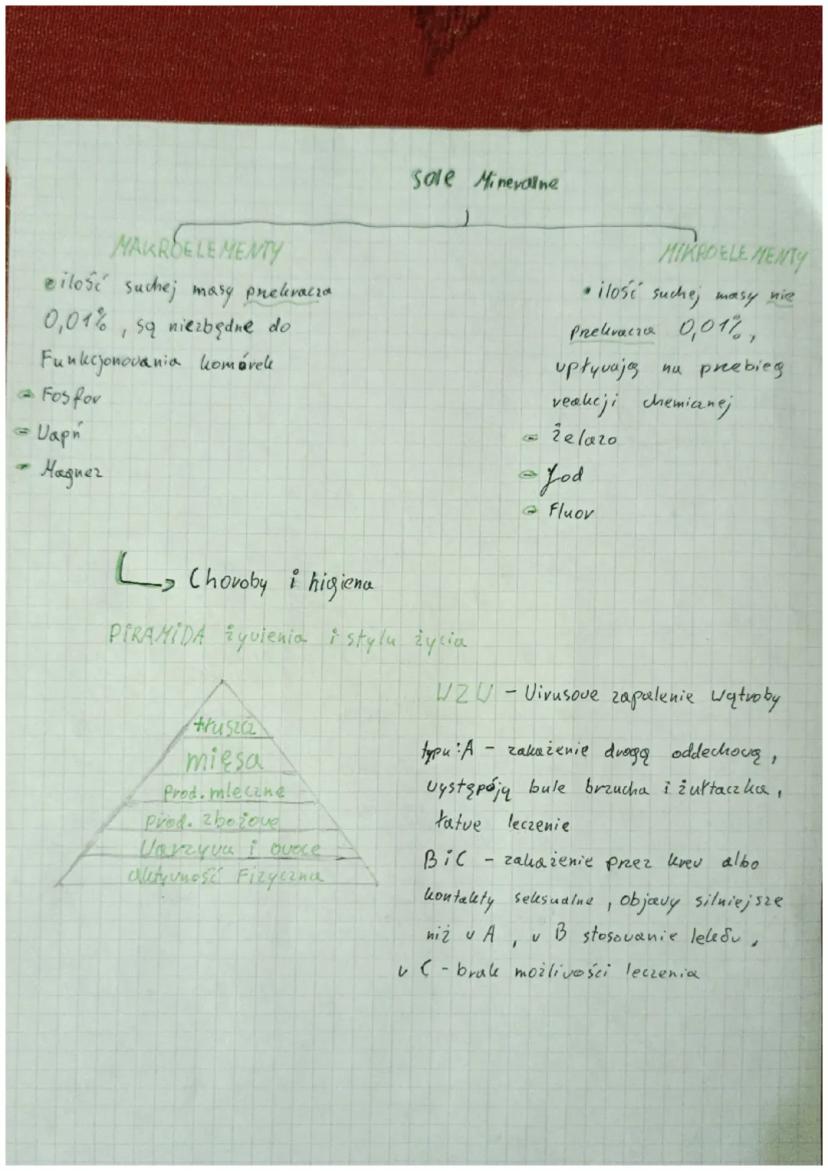 Sole Mineralne
MAKROELEMENTY
• ilość suchej masy przekracza
0,01%, są niezbędne do
Funkcjonowania komórek
- Fosfor
- Wapń
- Magnez
MIKROELEMENTY
• ilość suchej masy nie
przekracza 0,01%,
wpływają na przebieg
reakcji chemicznej
- Żelazo
- Jod
- Fluor
↳ Choroby i higiena
PIRAMIDA żywienia i stylu życia
tłuszcz
mięsa
Prod. mleczne
prod. zbożowe
Warzywa i owoce
aktywność Fizyczna
WZW - Wirusowe zapalenie wątroby
typu: A - zakażenie drogą oddechową,
występóją bule brzucha i żułtaczka,
łatwe leczenie
B i C - zakażenie przez krew albo
kontakty seksualne, objawy silniejsze
niż w A, w B stosowanie leków,
w C - brak możliwości leczenia